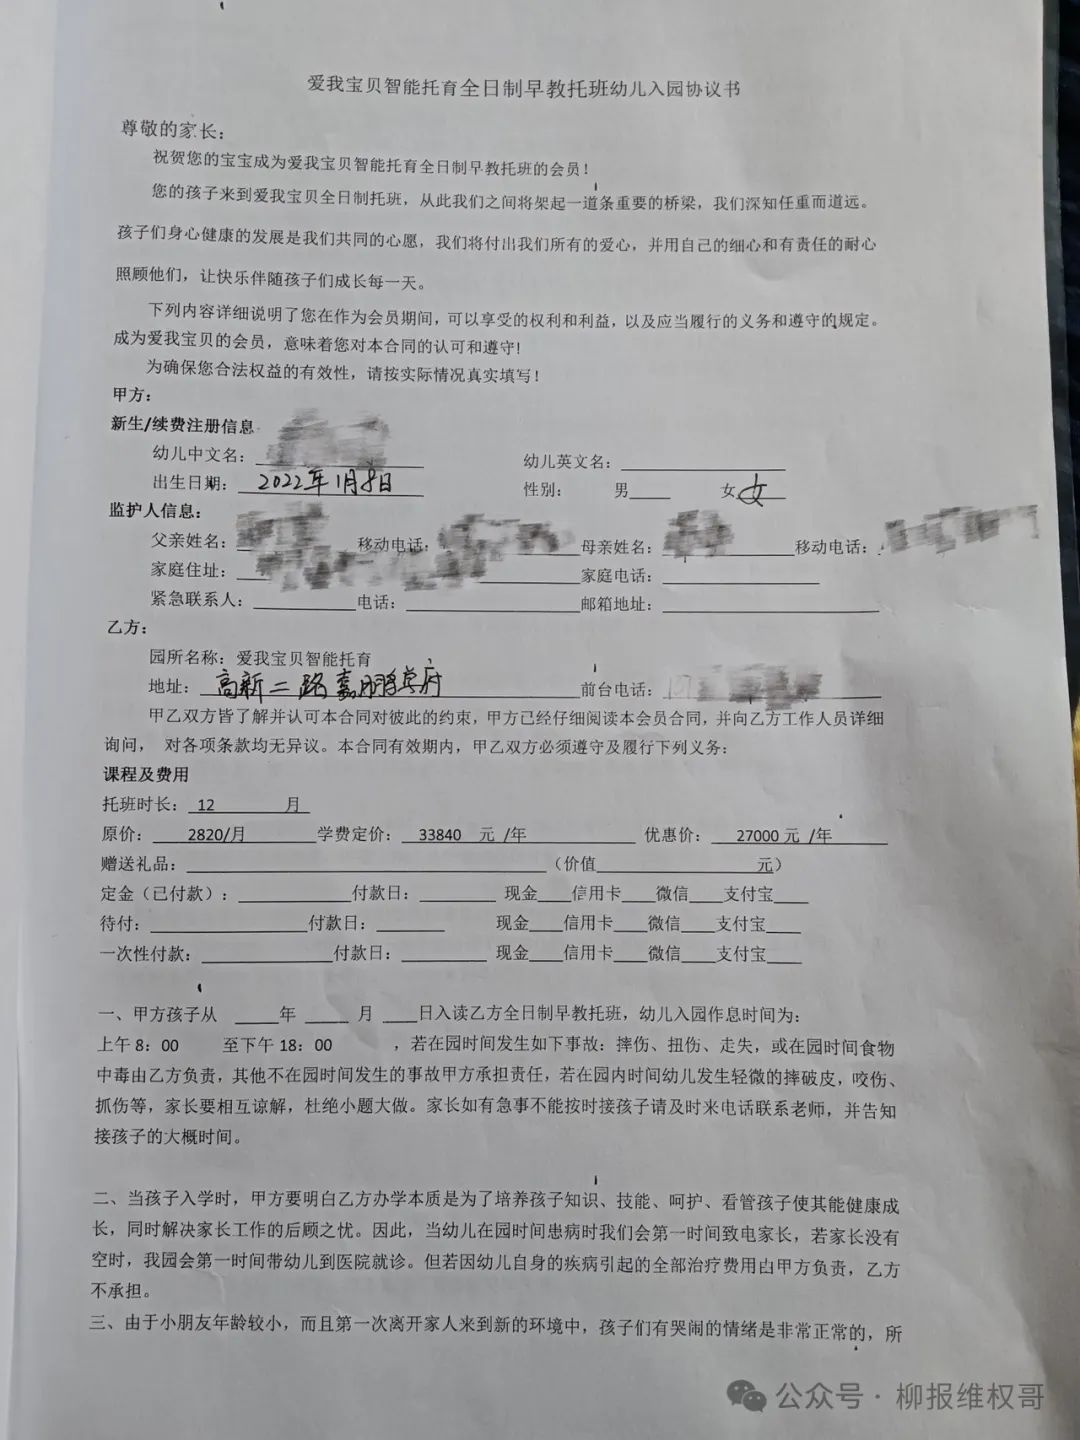 爱我宝贝智能托育全日制早教托班幼儿入园协议书
尊敬的家长：
祝贺您的宝宝成为爱我宝贝智能托育全日制早教托班的会员！
您的孩子来到爱我宝贝全日制托班，从此我们之间将架起一道条重要的桥梁，我们深知任重而道远。
孩子们身心健康的发展是我们共同的心愿，我们将付出我们所有的爱心，并用自己的细心和有责任的耐心
照顾他们，让快乐伴随孩子们成长每一天。
下列内容详细说明了您在作为会员期间，可以享受的权利和利益，以及应当履行的义务和遵守的规定。
成为爱我宝贝的会员，意味着您对本合同的认可和遵守！
为确保您合法权益的有效性，请按实际情况真实填写！
甲方：
新生/续费注册信息
幼儿中文名： 幼儿英文名：
出生日期：2022年1月8日 性别： 男 女 女
监护人信息：
父亲姓名： 移动电话： 母亲姓名： 移动电话：
家庭住址： 家庭电话：
紧急联系人： 电话： 邮箱地址：
乙方：
园所名称：爱我宝贝智能托育
地址：高新二路嘉鹏学府 前台电话：
甲乙双方皆了解并认可本合同对彼此的约束，甲方已经仔细阅读本会员合同，并向乙方工作人员详细
询问， 对各项条款均无异议。本合同有效期内，甲乙双方必须遵守及履行下列义务：
课程及费用
托班时长： 12 月
原价： 2820/月 学费定价： 33840 元 /年 优惠价： 27000 元 /年
赠送礼品： （价值 元）
定金（已付款）： 付款日： 现金 信用卡 微信 支付宝
待付： 付款日： 现金 信用卡 微信 支付宝
一次性付款： 付款日： 现金 信用卡 微信 支付宝
一、甲方孩子从 年 月 日入读乙方全日制早教托班，幼儿入园作息时间为：
上午 8：00 至下午 18：00 ，若在园时间发生如下事故：摔伤、扭伤、走失，或在园时间食物
中毒由乙方负责，其他不在园时间发生的事故甲方承担责任，若在园内时间幼儿发生轻微的摔破皮，咬伤、
抓伤等，家长要相互谅解，杜绝小题大做。家长如有急事不能按时接孩子请及时来电话联系老师，并告知
接孩子的大概时间。
二、当孩子入学时，甲方要明白乙方办学本质是为了培养孩子知识、技能、呵护、看管孩子使其能健康成
长，同时解决家长工作的后顾之忧。因此，当幼儿在园时间患病时我们会第一时间致电家长，若家长没有
空时，我园会第一时间带幼儿到医院就诊。但若因幼儿自身的疾病引起的全部治疗费用由甲方负责，乙方
不承担。
三、由于小朋友年龄较小，而且第一次离开家人来到新的环境中，孩子们有哭闹的情绪是非常正常的，所
公众号·柳报维权哥